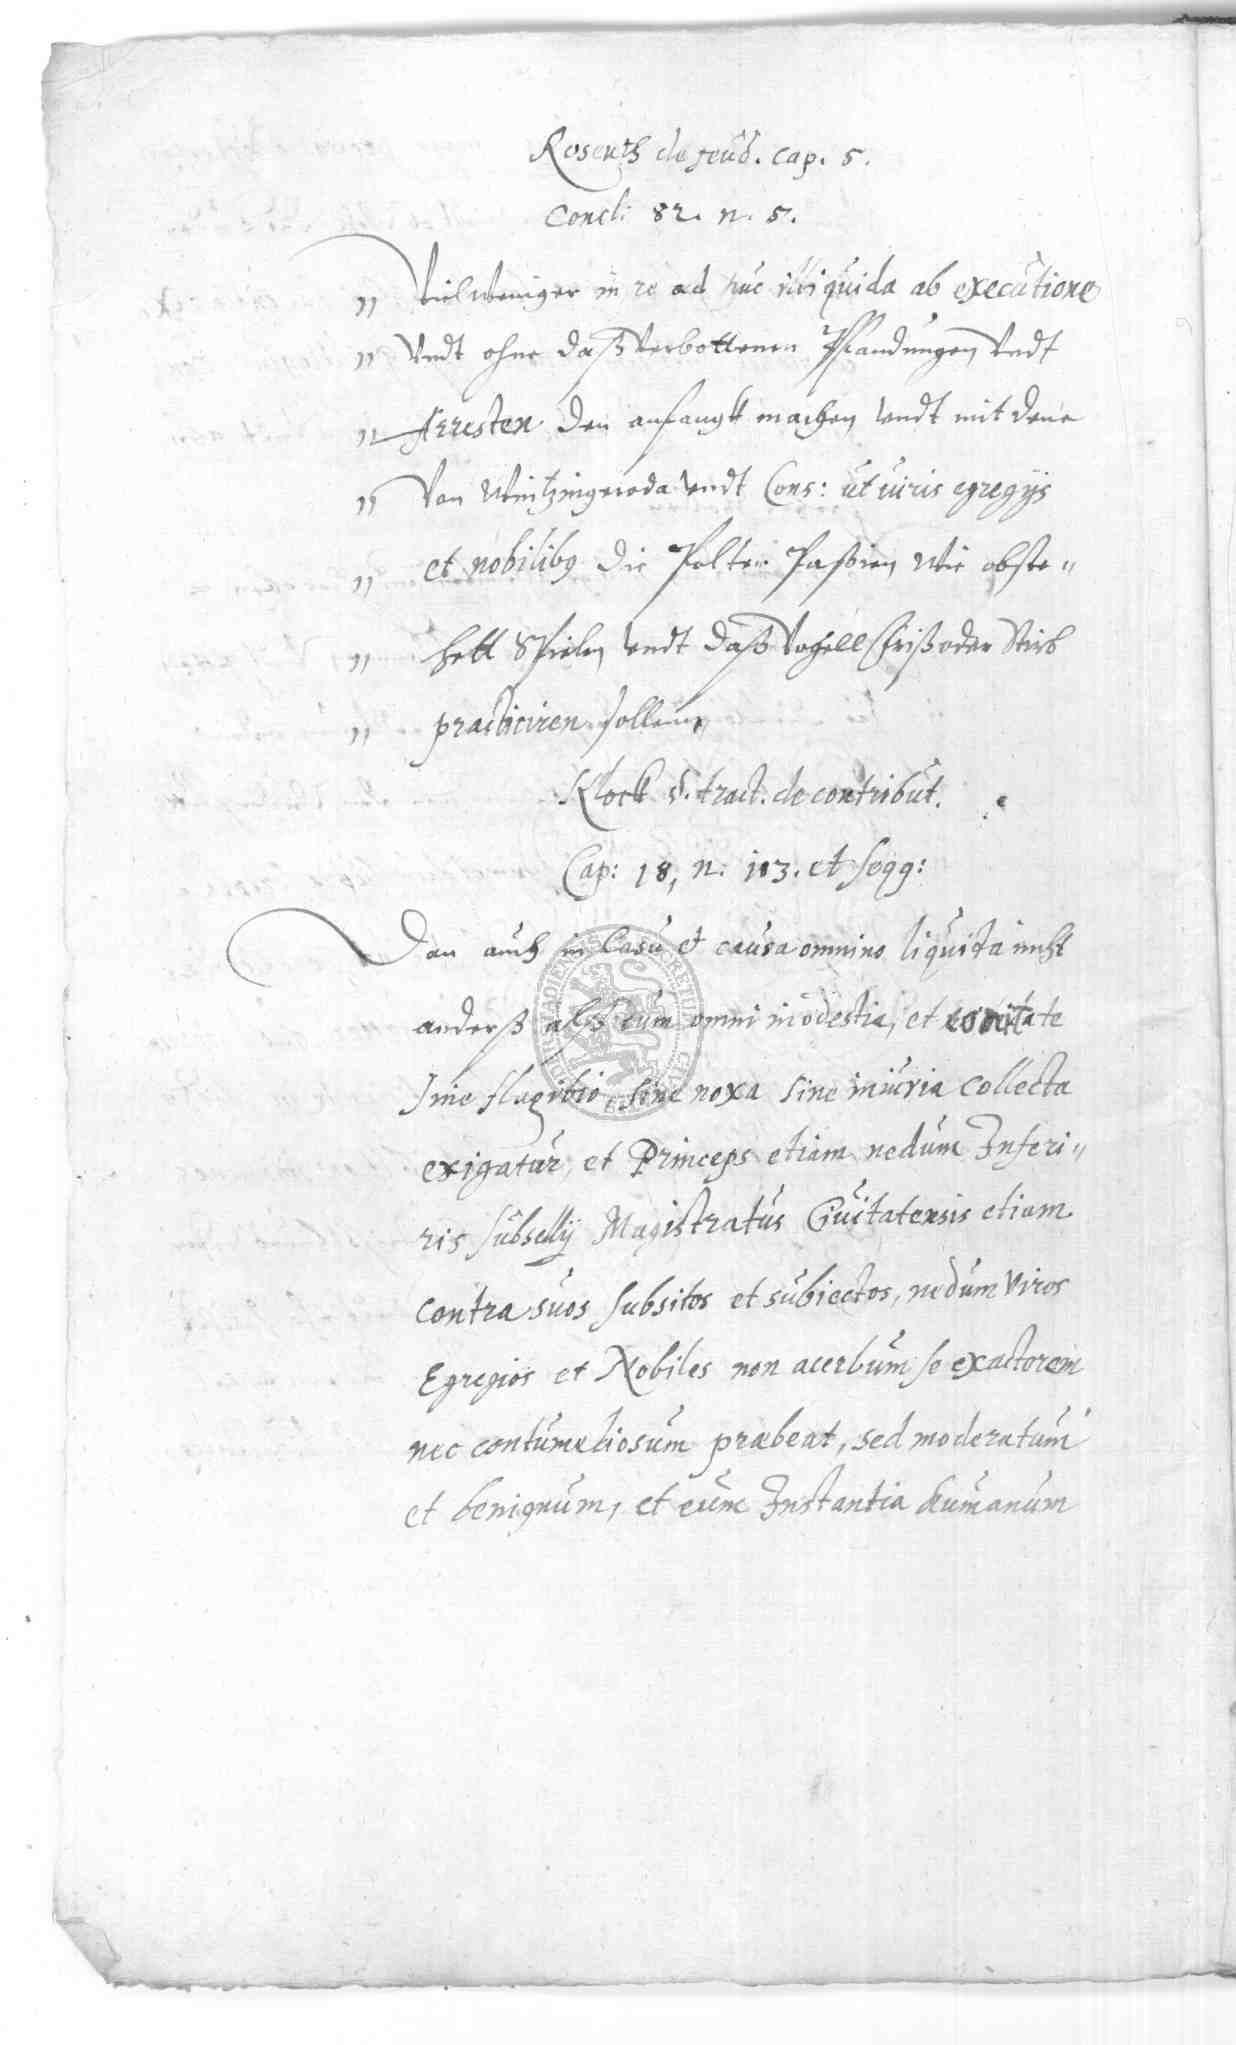 Rosenth de feud. cap. 5.
Concl: 82. n. 5.
" Vielweniger in re ad huc illiquida ab executione
" Vndt ohne daß verbottenen Pfandungen Vndt
" Arresten den anfangk machen Vndt mit dene
" Von Wintzingeroda Vndt Cons: ut viris egregijs
" et nobilibg die Polter Paßion wie obste„
" hett Spielen Vndt daß Vogell friß oder Stirb
" practiciren sollenn
Klock d. tract. de contribut.
Cap: 18, n. 113. et seqq:
Dan auch in Casu et causa omnino liquita nicht
anderß alß cum omni modestia, et
sine flagitio, sine noxa sine iniuria collecta
exigatur, et Princeps etiam nedum Inferi„
ris subsellij Magistratus Ciuitatensis etiam
contra suos subsitos et subiectos, nedum Viros
Egregios et Nobiles non acerbum se exactorem
nec contumeliosum præbeat, sed moderatum
et benignum, et cum Instantia humanum